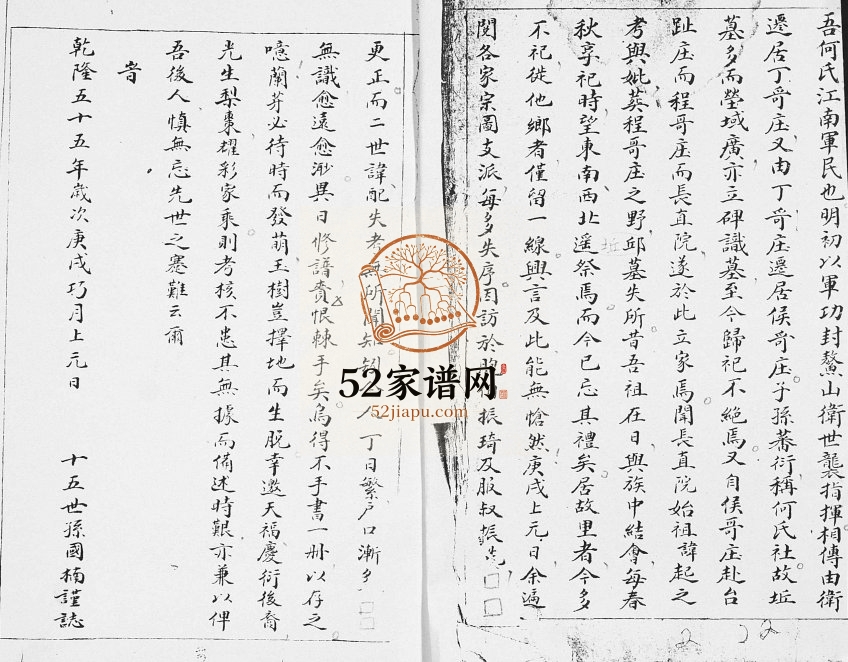 吾何氏江南軍民也明初以軍功封鰲山衛世襲指揮相傳由衛
遷居丁哥庄又由丁哥庄遷居侯哥庄子孫蕃衍稱何氏社故坵
墓多而塋域廣亦立碑識墓至今歸祀不絕焉又自侯哥庄赴台
趾庄而程哥庄而長直院遂於此立家焉聞長直院始祖諱起之
考與妣葬程哥庄之野邱墓失所昔吾祖在日與族中結會每春
秋享祀時望東南西北遥祭焉而今已忘其禮矣居故里者今多
不祀徙他鄉者僅留一線興言及此能無愴然庚戌上元日余遍
閱各家宗圖支派每多失序因訪於 振琦及服叔振先□□
更正而二世諱配失考無所聞知 人丁日繁户口漸多□□
無識愈遠愈渺異日修譜貴恨棘手矣烏得不手書一册以存之
噫蘭芽必待時而發萌玉樹豈擇地而生脱幸邀天福慶衍後裔
光生梨棗耀彩家乘則考核不患其無據而備述時艱亦兼以俾
吾後人慎無忘先世之蹇難云爾
旹
乾隆五十五年歲次庚戌巧月上元日 十五世孫國楠謹誌
52家谱网
52jiapu.com